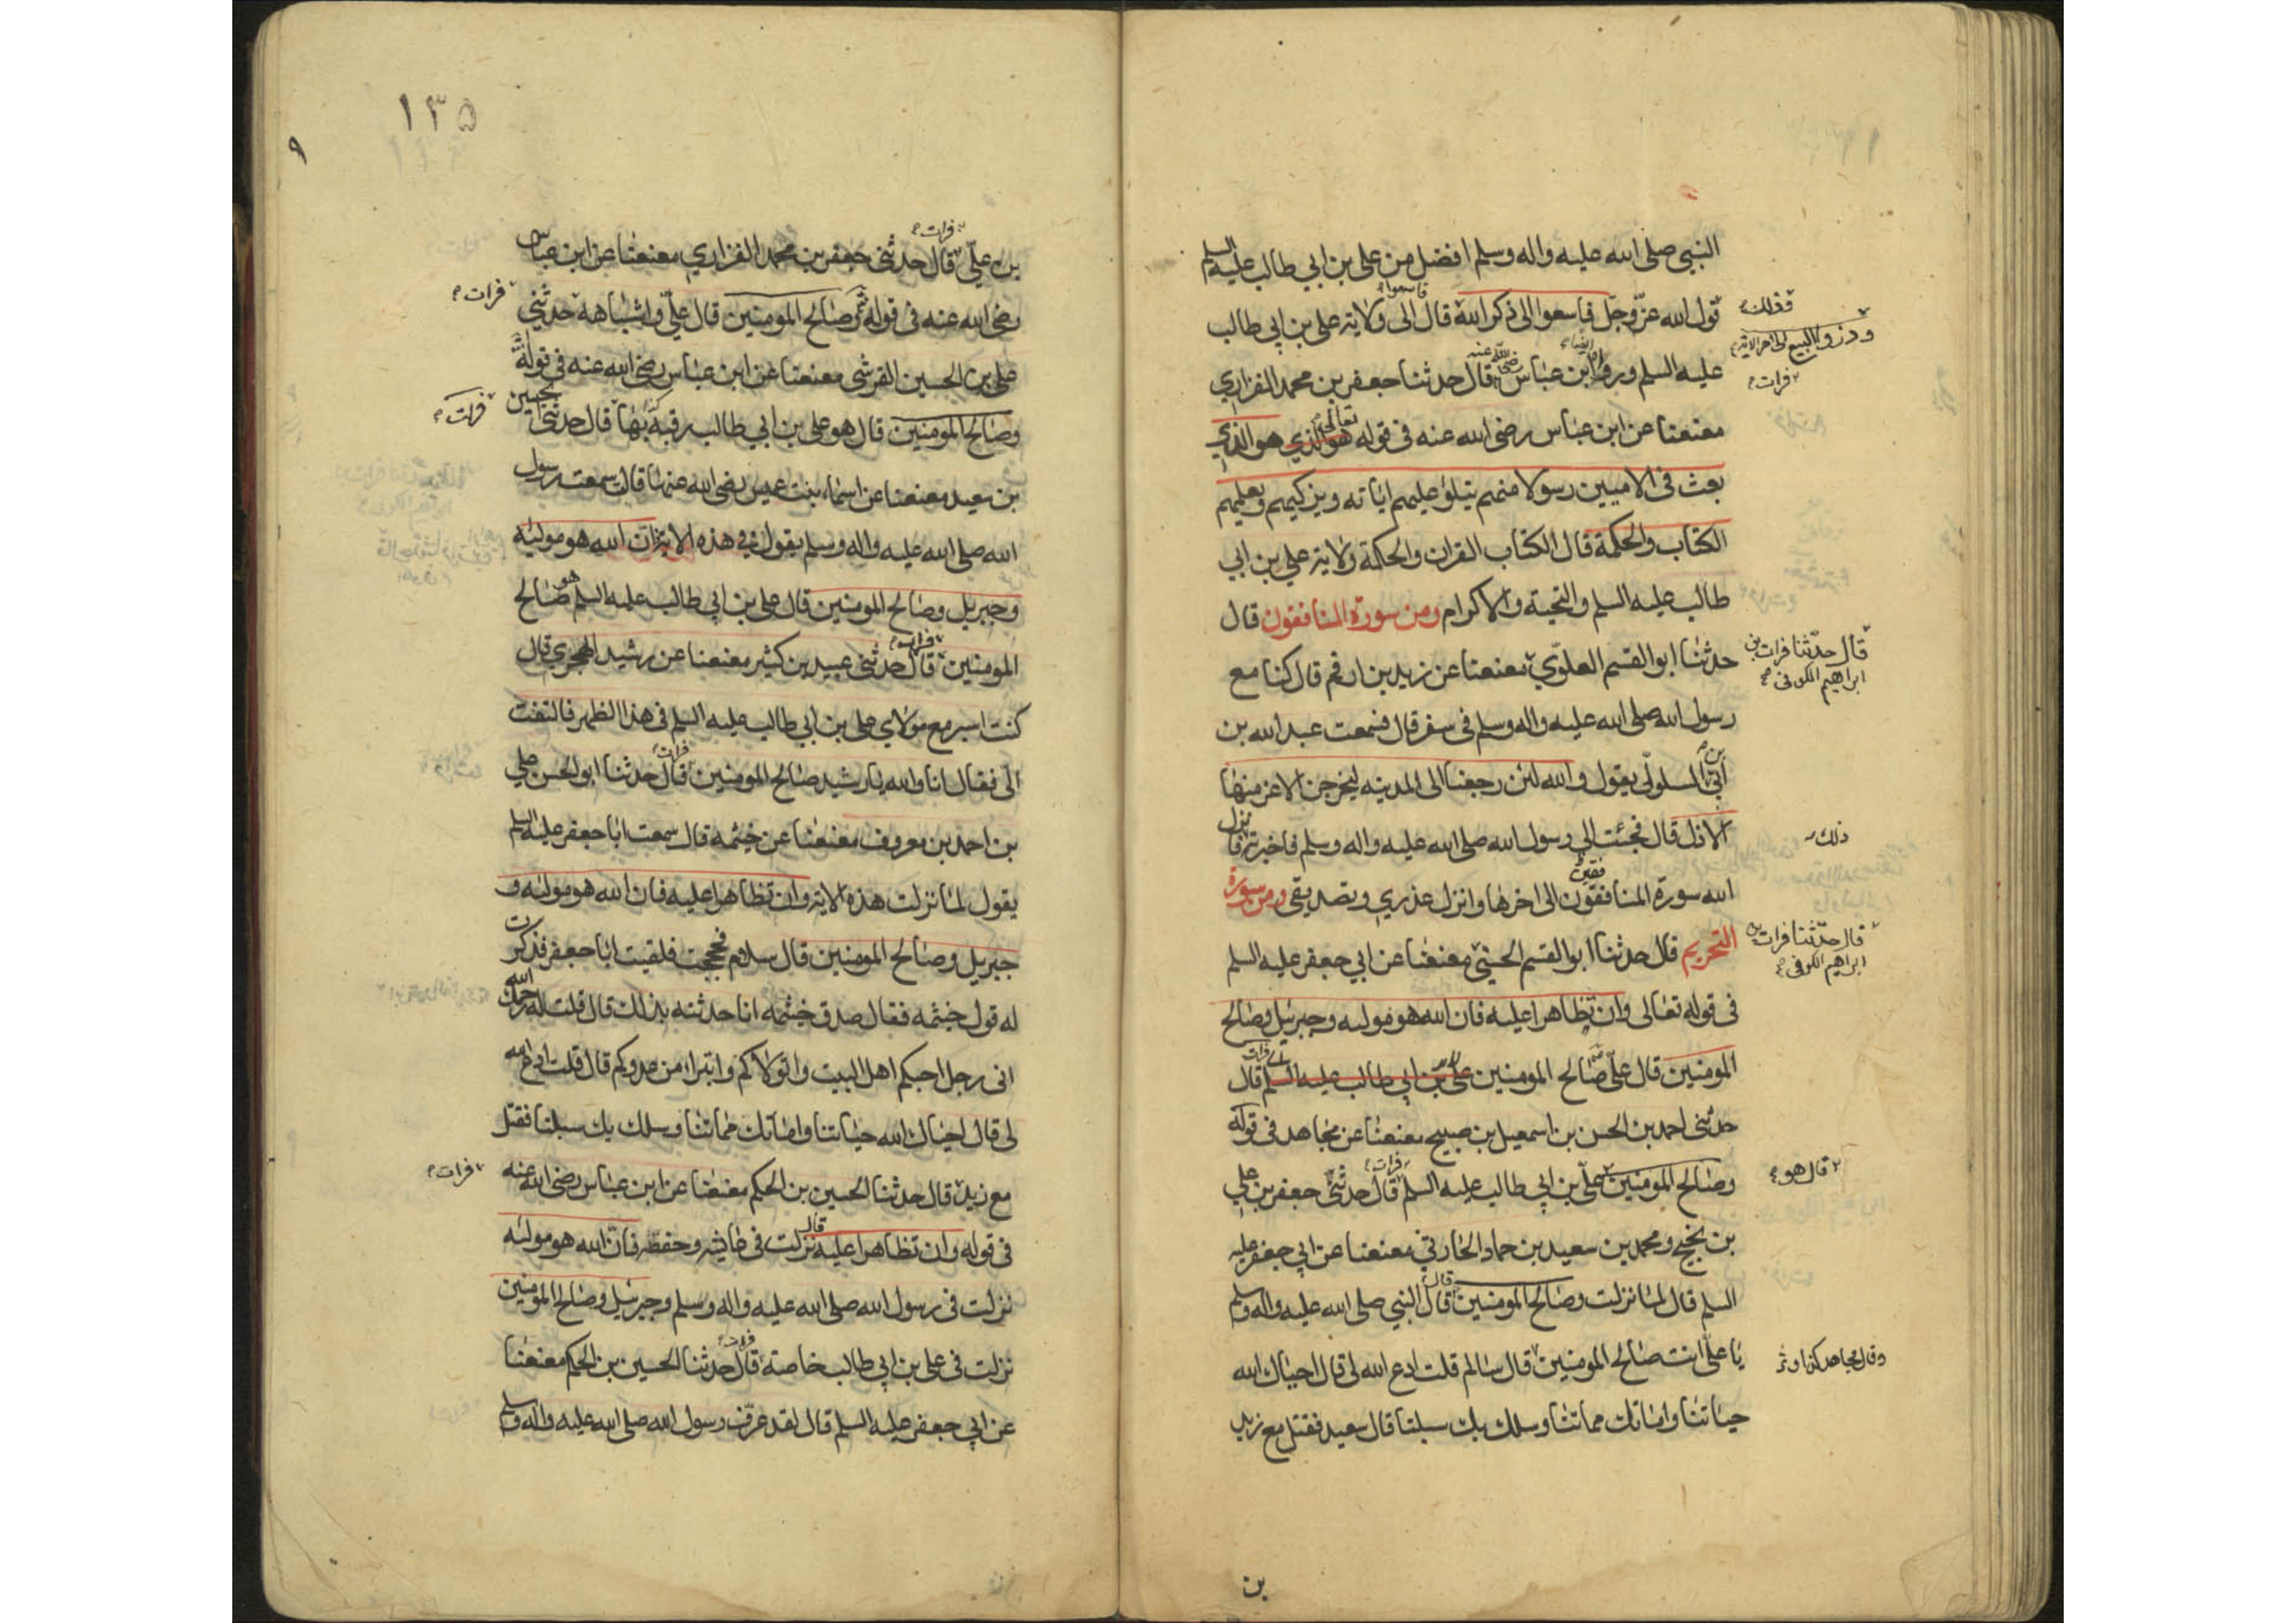 النبي صلى الله عليه واله وسلم افضل من علي بن ابي طالب عليه السلم
قول الله عز وجل فاسعوا الى ذكر الله قال الى ولاية علي بن ابي طالب
فاسعوا
فذلك
وذروا البيع الى اخر الاية
عليه السلم وروا ابن عباس رضي الله عنه قال حدثنا جعفر بن محمد الفزاري
ايضا
فرات
معنعنا عن ابن عباس رضي الله عنه في قوله تعالى هو الذي هو الذي
بعث في الاميين رسولا منهم يتلوا عليهم اياته ويزكيهم ويعلمهم
الكتاب والحكمة قال الكتاب القران والحكمة ولاية علي بن ابي
طالب عليه السلم والتحية والاكرام ومن سورة المنافقون قال
حدثنا ابو القسم العلوي معنعنا عن زيد بن ارقم قال كنا مع
قال حدثنا فرات بن
ابراهيم الكوفي
رسول الله صلى الله عليه واله وسلم في سفر قال فسمعت عبد الله بن
ابي بن السلولي يقول والله لئن رجعنا الى المدينه ليخرجن الاعز منها
الاذل قال فجئت الى رسول الله صلى الله عليه واله وسلم فاخبرته فانزل
ذلك
الله سورة المنافقون الى اخرها وانزل عذري وتصديقي ومن سورة
فقين
التحريم قال حدثنا ابو القسم الحسني معنعنا عن ابي جعفر عليه السلم
قال حدثنا فرات بن
ابراهيم الكوفي
في قوله تعالى وان تظاهرا عليه فان الله هو موليه وجبريل وصالح
المومنين قال علي صالح المومنين علي بن ابي طالب عليه السلم قال
فرات
حدثني احمد بن الحسن بن اسمعيل بن صبيح معنعنا عن مجاهد في قوله
وصالح المومنين علي بن ابي طالب عليه السلم قال حدثني جعفر بن علي
فرات
قال هو
بن نجيح ومحمد بن سعيد بن حماد الحارثي معنعنا عن ابي جعفر عليه
السلم قال لما نزلت وصالح المومنين قال النبي صلى الله عليه واله وسلم
قال
يا علي انت صالح المومنين قال سالم قلت ادع الله لي قال احياك الله
وقال مجاهد
حياتنا واماتك مماتنا وسلك بك سبلنا قال سعيد فقتل مع زيد
بن
١٣٥
٩
بن علي قال حدثني جعفر بن محمد الفزاري معنعنا عن ابن عباس
فرات
رضي الله عنه في قوله وصالح المومنين قال علي واشباهه حدثني
فرات
علي بن الحسين القرشي معنعنا عن ابن عباس رضي الله عنه في قوله
وصالح المومنين قال هو علي بن ابي طالب قال حدثنا الحسين
فرات
بن سعيد معنعنا عن اسماء بنت عميس رضي الله عنها قالت سمعت رسول
الله صلى الله عليه واله وسلم يقول في هذه الاية فان الله هو موليه
وجبريل وصالح المومنين قال علي بن ابي طالب عليه السلم هو صالح
المومنين قال حدثني عبيد بن كثير معنعنا عن رشيد الهجري قال
فرات
كنت اسير مع مولاي علي بن ابي طالب عليه السلم في هذا الظهر فالتفت
الي فقال انا والله يا رشيد صالح المومنين قال حدثنا ابو الحسن علي
فرات
بن احمد بن معروف معنعنا عن خيثمه قال سمعت ابا جعفر عليه السلم
يقول لما نزلت هذه الاية وان تظاهرا عليه فان الله هو موليه و
جبريل وصالح المومنين قال سلام فحججت فلقيت ابا جعفر فذكرت
له قول خيثمه فقال صدق خيثمه انا حدثته بذلك قال قلت له رحمك الله
اني رجل احبكم اهل البيت واتولاكم واتبرا من عدوكم قال قلت ادع الله
لي قال احياك الله حياتنا واماتك مماتنا وسلك بك سبلنا فقتل
مع زيد قال حدثنا الحسين بن الحكم معنعنا عن ابن عباس رضي الله عنه
فرات
في قوله وان تظاهرا عليه قال نزلت في عايشه وحفظه فان الله هو موليه
نزلت في رسول الله صلى الله عليه واله وسلم وجبرئيل وصالح المومنين
نزلت في علي بن ابي طالب خاصة قال حدثنا الحسين بن الحكم معنعنا
فرات
عن ابي جعفر عليه السلم قال لقد عرف رسول الله صلى الله عليه واله وسلم